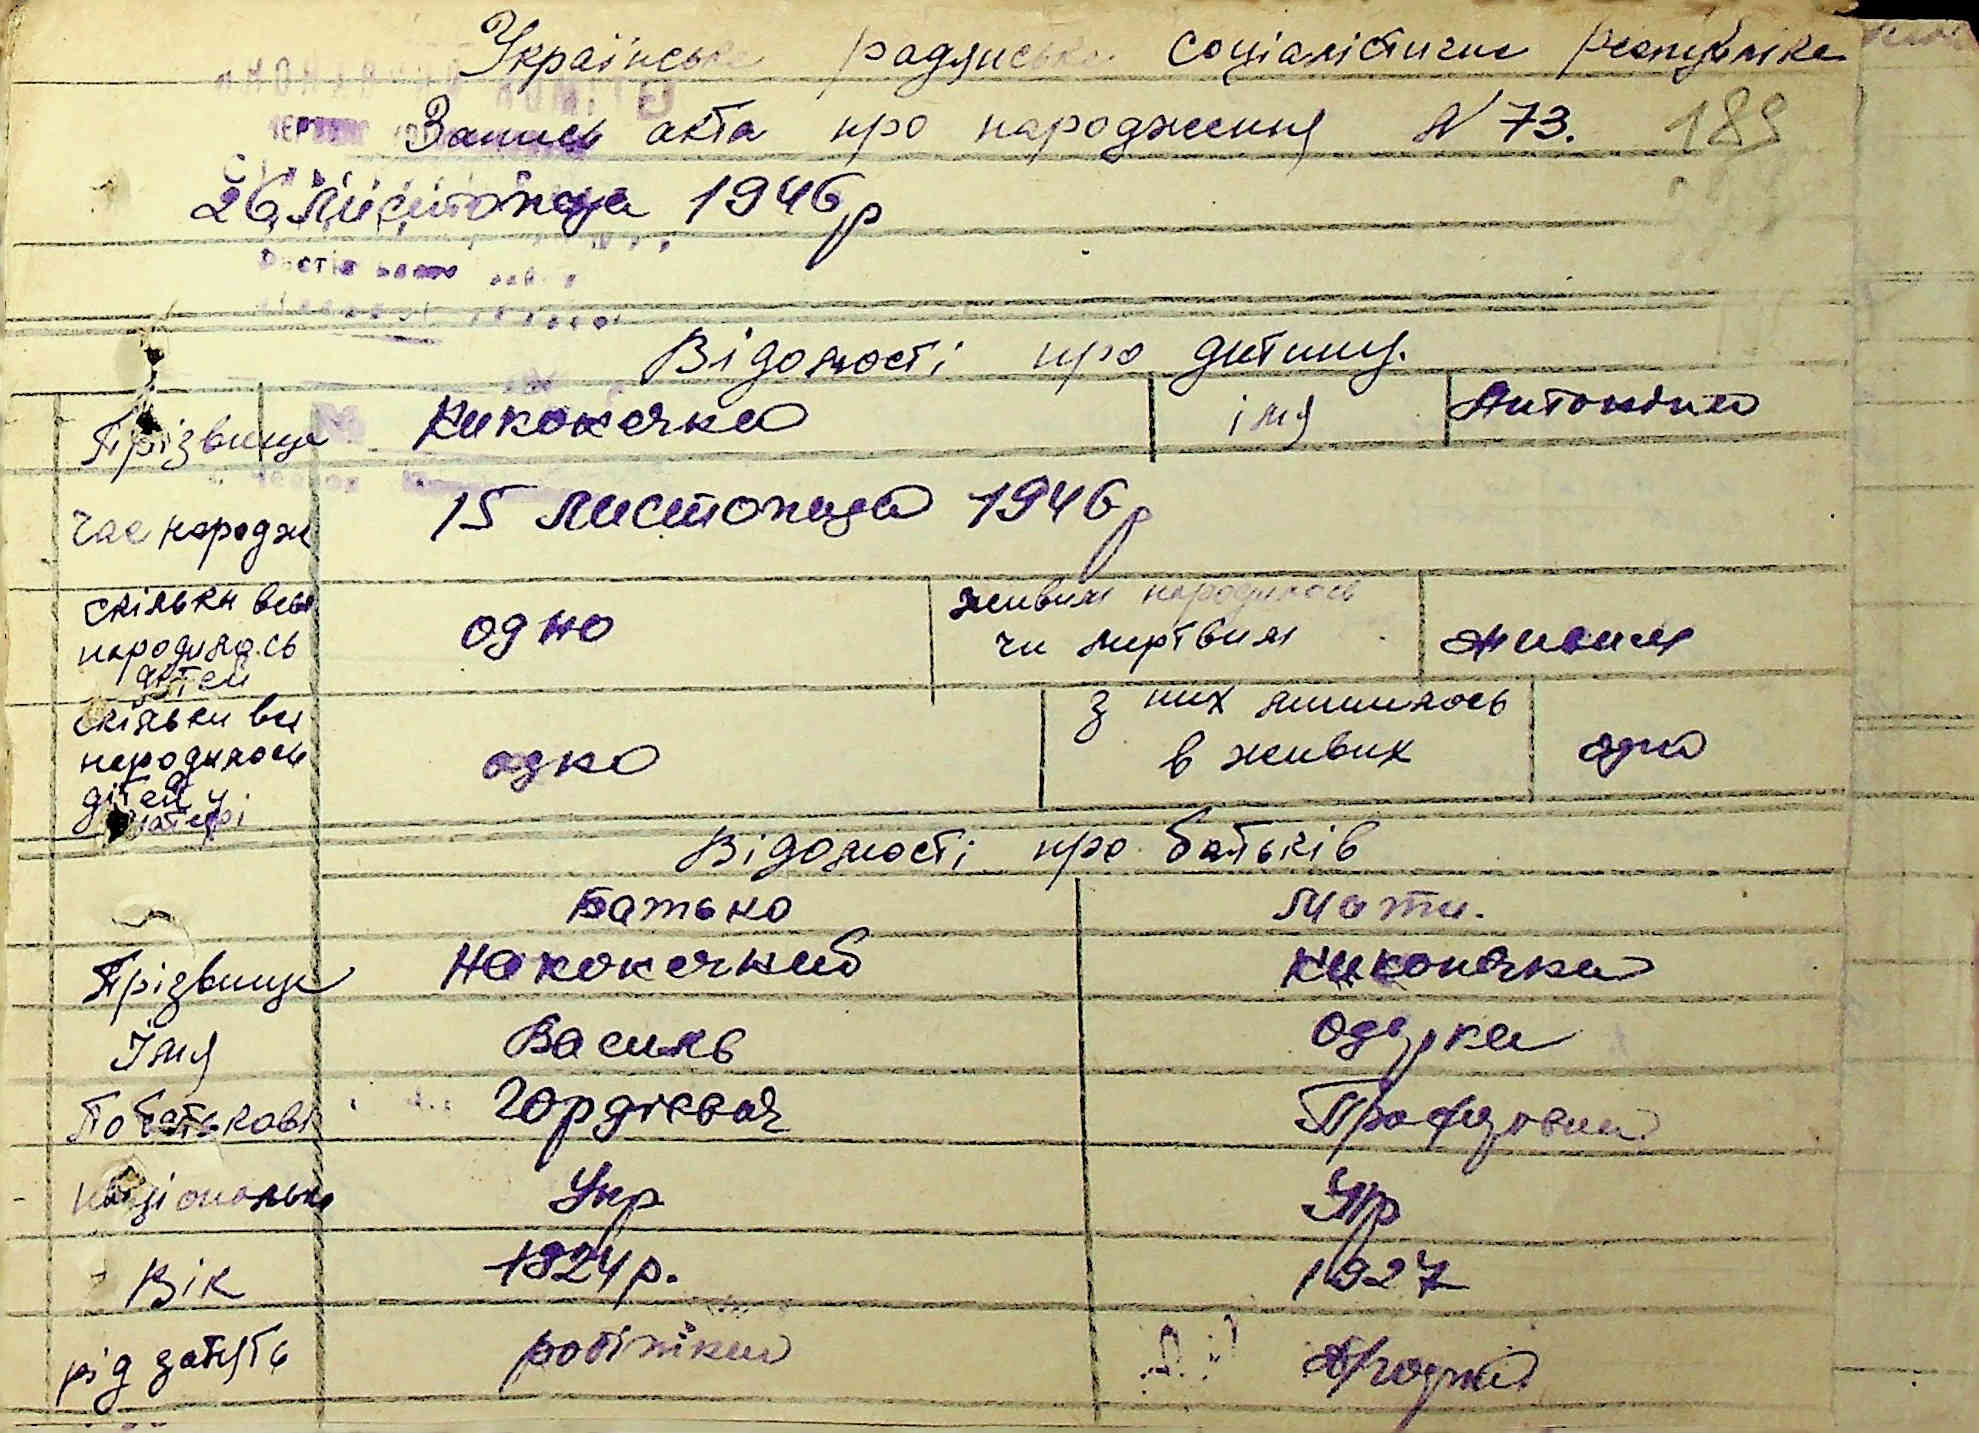 Українська радянська соціалістична республіка
Запись акта про народження N 73. 189
26 Листопада 1946 р
Відомості про дитину.
Прізвище Никонечна імя Антоніна
час народж 15 листопада 1946 р
скільки всьо народилось дітей одно живим народилось чи мертвим живим
скільки всь народилось дітей у матері одно з них лишилось в живих одно
Відомості про батьків
Батько Мати.
Прізвище Наконечний Никонечна
Імя Василь Одарка
По батькові Гордієвич
національн Укр Укр
Вік 1924 р. 1927
рід занять